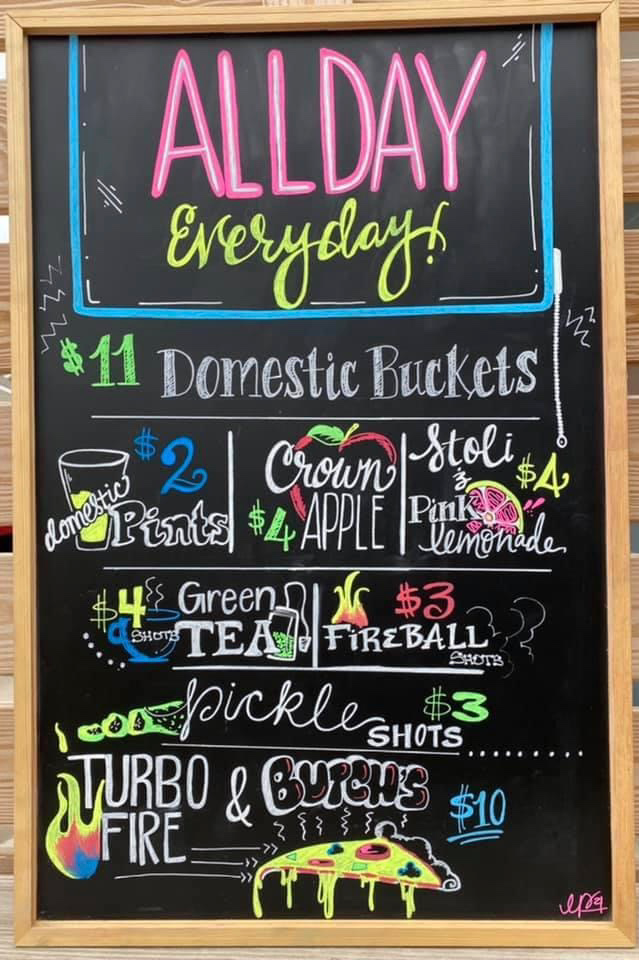 ALL DAY
Everyday!
$11 Domestic Buckets
$2
domestic Pints
Crown
$4 APPLE
Stoli
& $4
Pink
lemonade
$4 SHOTS Green
TEA
$3
FiREBALL
SHOTS
pickle $3
SHOTS
TURBO
FIRE
& BUTCH'S $10